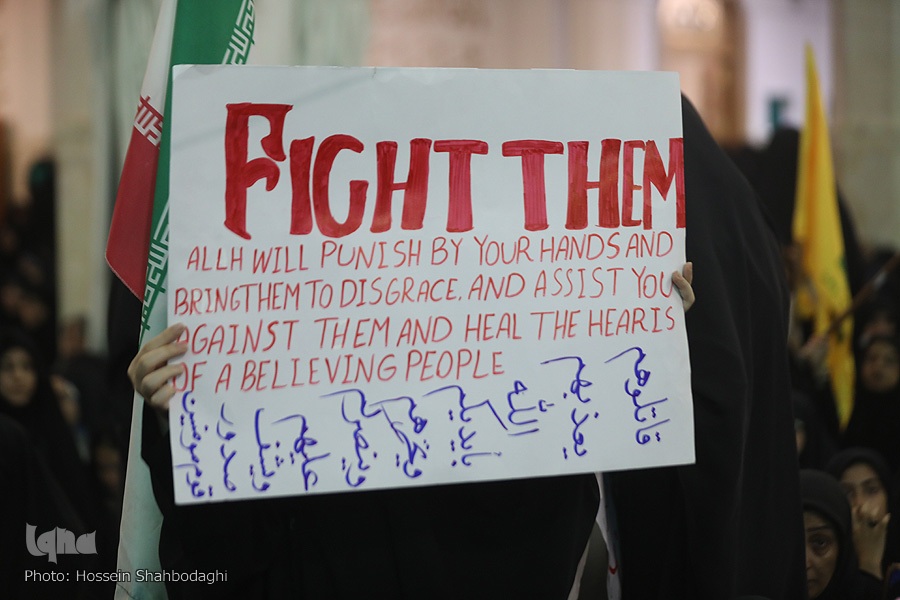 FIGHT THEM
ALLH WILL PUNISH BY YOUR HANDS AND
BRING THEM TO DISGRACE. AND ASSIST YOU
AGAINST THEM AND HEAL THE HEARTS
OF A BELIEVING PEOPLE
قاتلوهم يعذبهم الله بايديكم ويخزهم وينصركم عليهم ويشف صدور قوم مومنين
iqna
Photo: Hossein Shahbodaghi